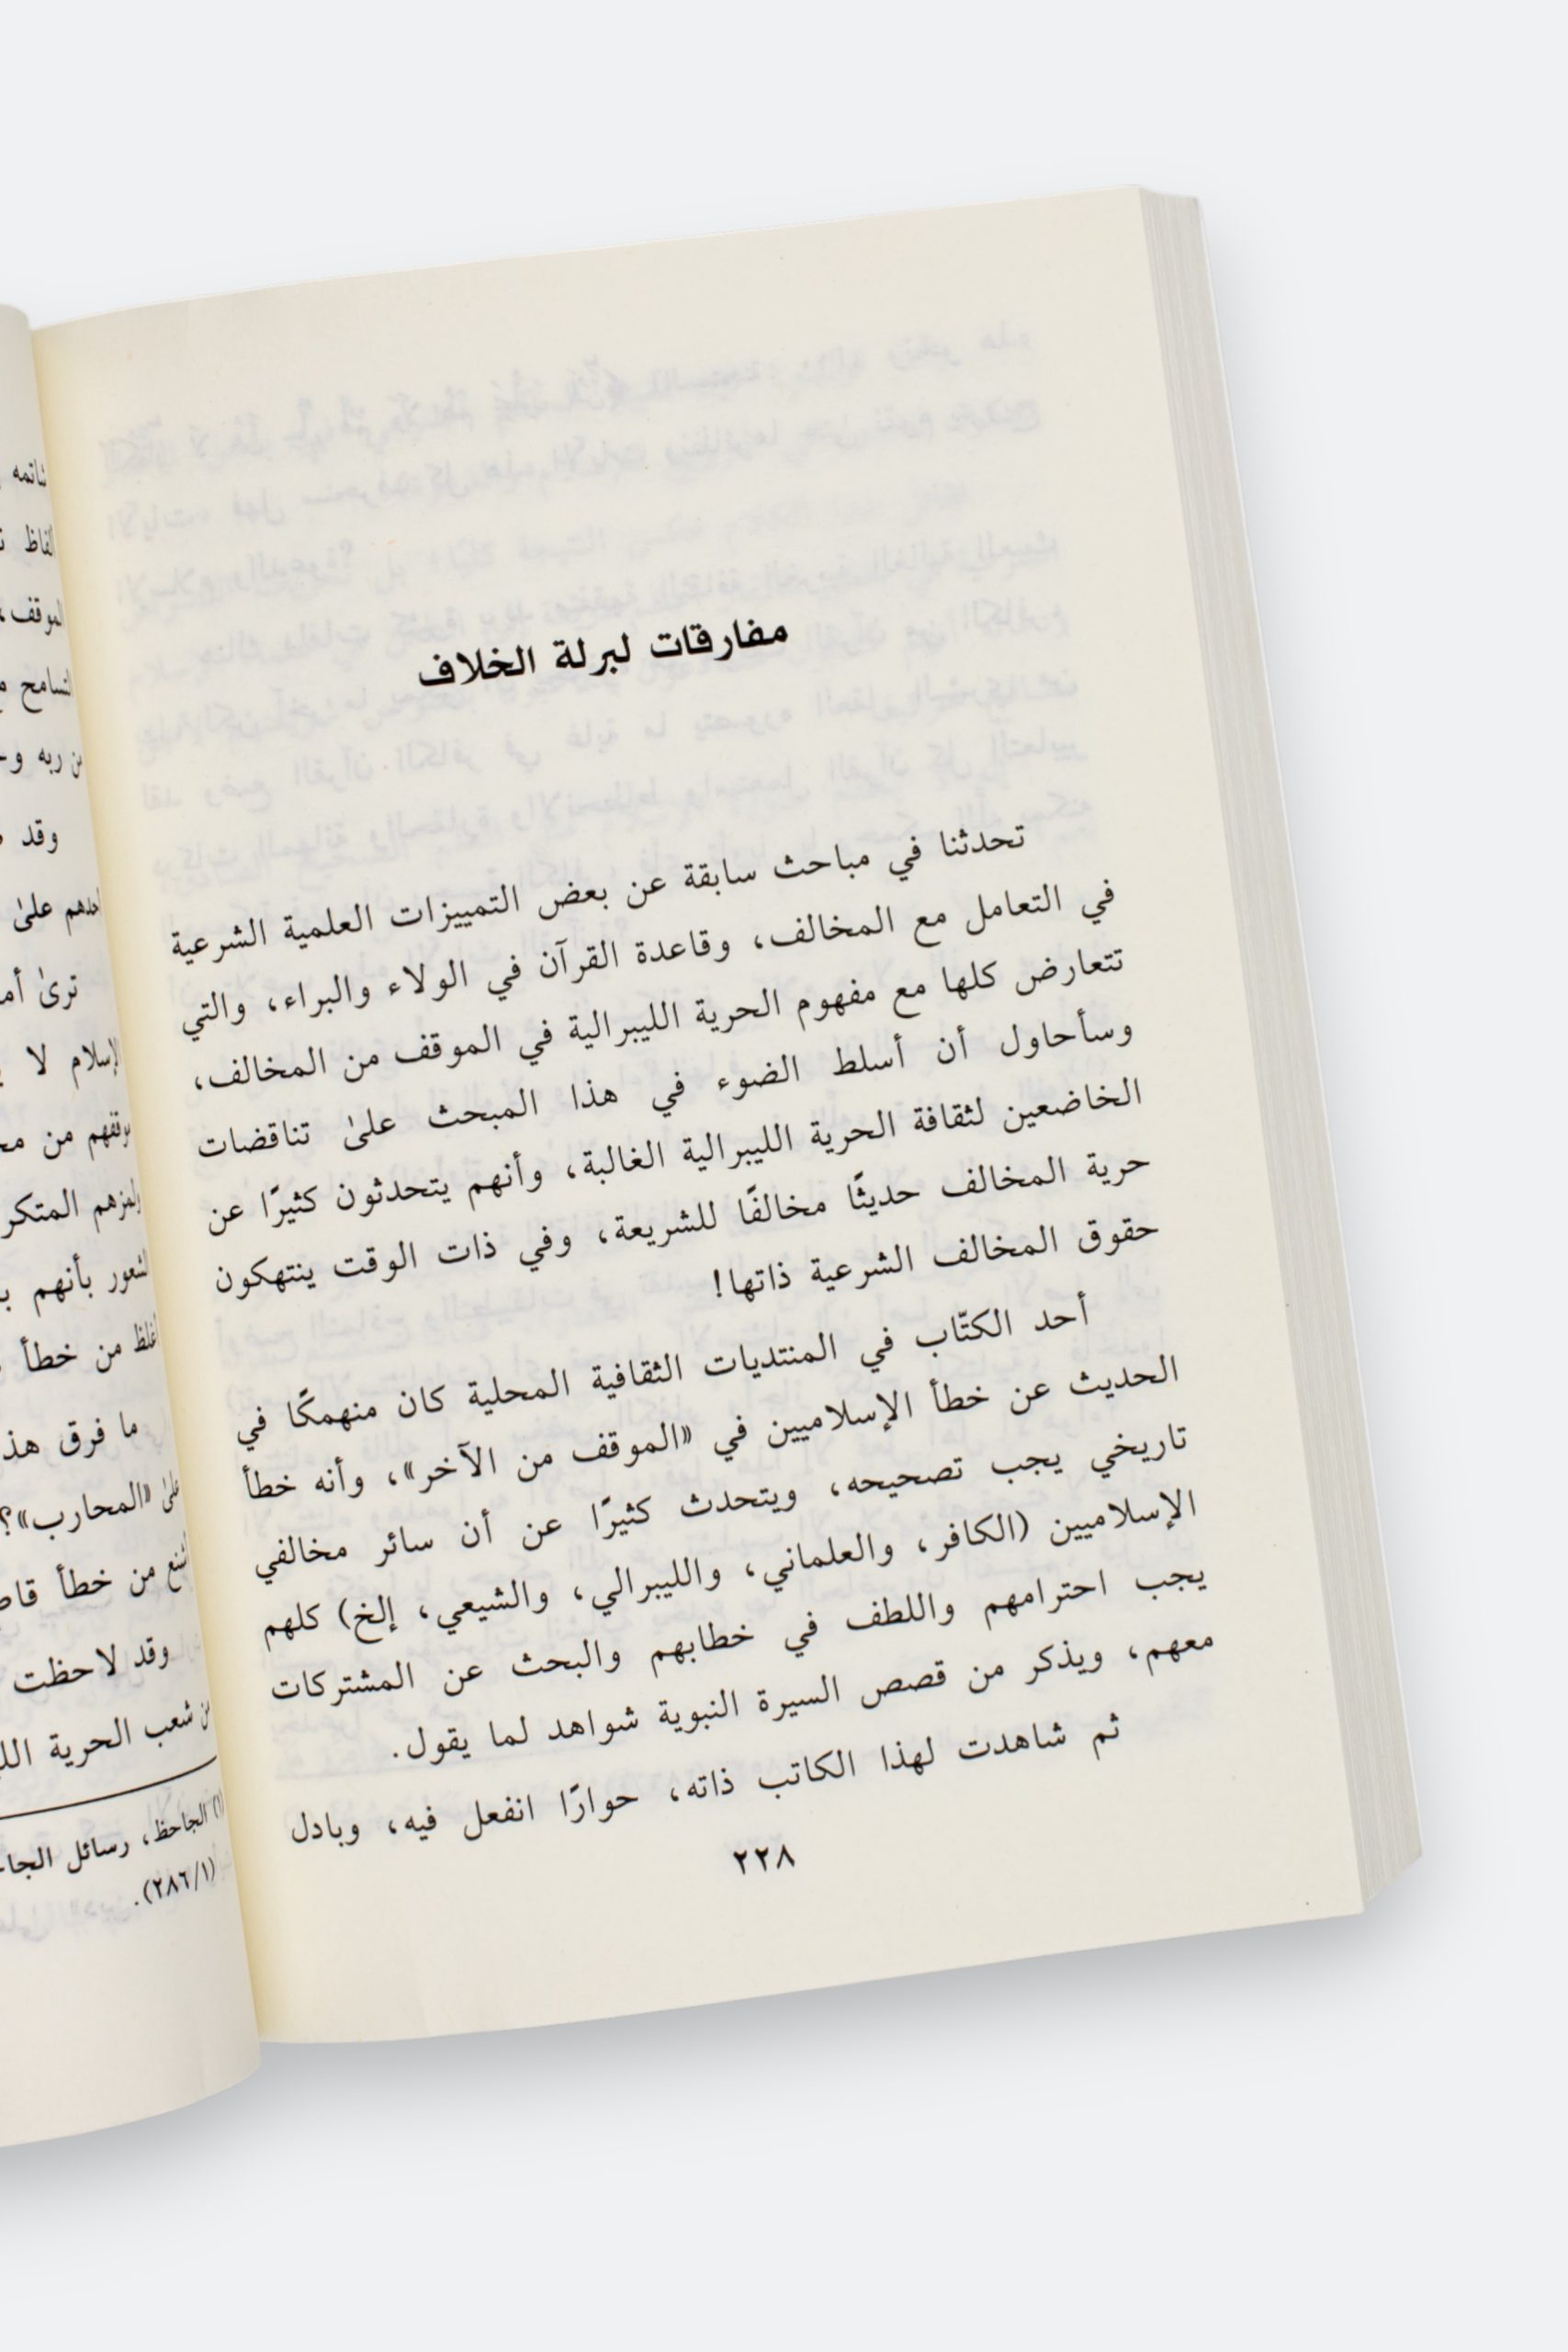 مفارقات لبرلة الخلاف
تحدثنا في مباحث سابقة عن بعض التمييزات العلمية الشرعية
في التعامل مع المخالف، وقاعدة القرآن في الولاء والبراء، والتي
تتعارض كلها مع مفهوم الحرية الليبرالية في الموقف من المخالف،
وسأحاول أن أسلط الضوء في هذا المبحث علىٰ تناقضات
الخاضعين لثقافة الحرية الليبرالية الغالبة، وأنهم يتحدثون كثيرًا عن
حرية المخالف حديثًا مخالفًا للشريعة، وفي ذات الوقت ينتهكون
حقوق المخالف الشرعية ذاتها!
أحد الكتّاب في المنتديات الثقافية المحلية كان منهمكًا في
الحديث عن خطأ الإسلاميين في «الموقف من الآخر»، وأنه خطأ
تاريخي يجب تصحيحه، ويتحدث كثيرًا عن أن سائر مخالفي
الإسلاميين (الكافر، والعلماني، والليبرالي، والشيعي، إلخ) كلهم
يجب احترامهم واللطف في خطابهم والبحث عن المشتركات
معهم، ويذكر من قصص السيرة النبوية شواهد لما يقول.
ثم شاهدت لهذا الكاتب ذاته، حوارًا انفعل فيه، وبادل
٢٢٨
الموقف،
ربه
وقد
علىٰ
ترىٰ
الإسلام لا
من
المتكر
بأنهم
من خطأ
ما فرق هذ
«المحارب»؟
من خطأ
وقد لاحظت
شعب الحرية
(١) الجاحظ، رسائل
(٢٨٦/١).